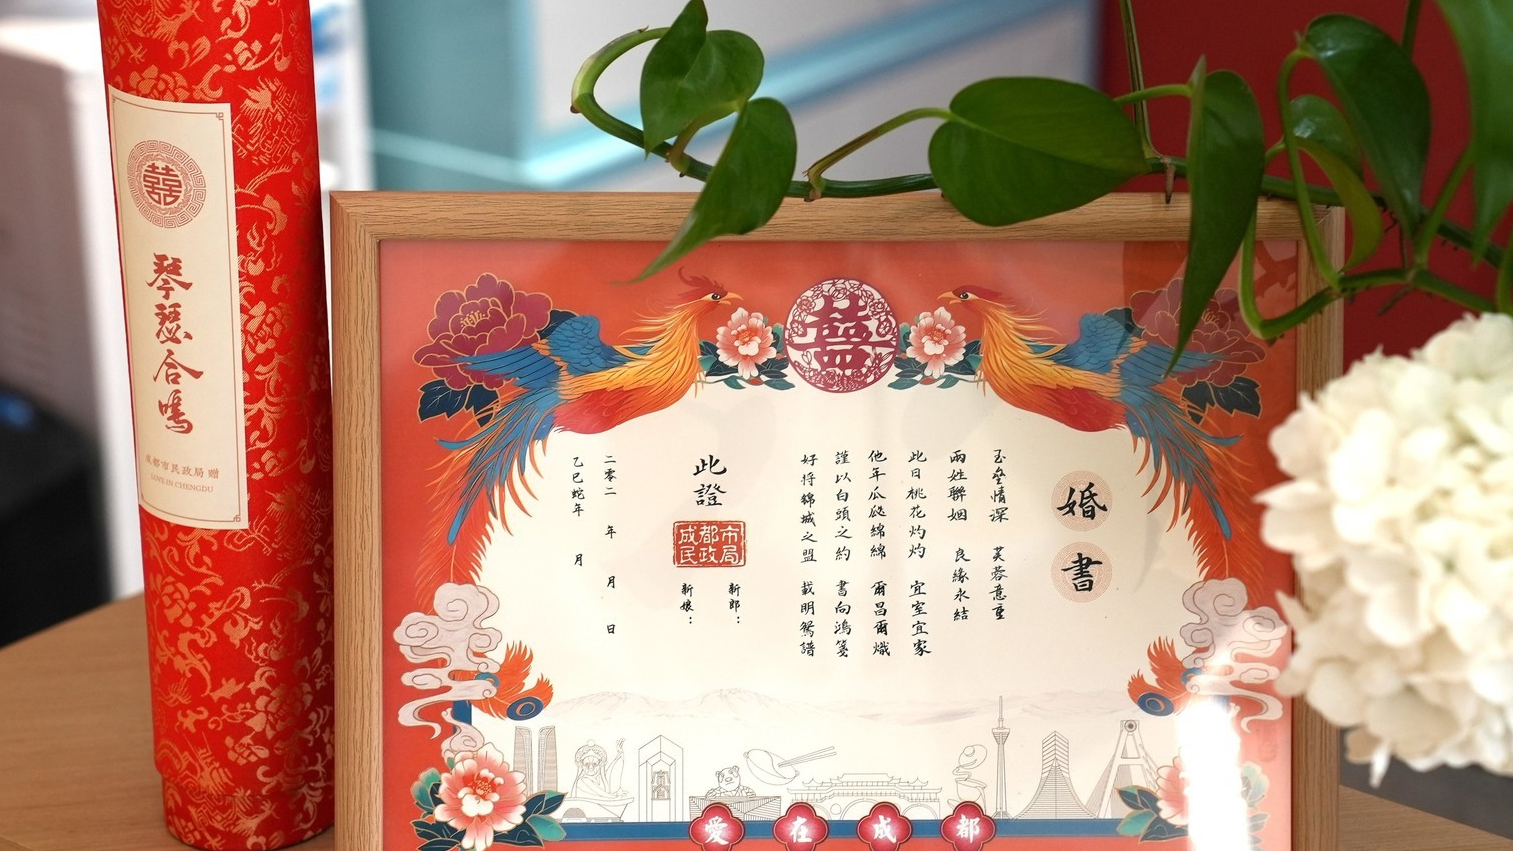 囍
琴瑟合鳴
成都市民政局 赠
LOVE IN CHENGDU
囍
婚書
玉壘情深 芙蓉意重
兩姓聯姻 良緣永結
此日桃花灼灼 宜室宜家
他年瓜瓞綿綿 爾昌爾熾
謹以白頭之約 書向鴻箋
好將錦城之盟 載明鴛譜
此證
新郎：
新娘：
成都市民政局
二零二 年 月 日
乙巳蛇年 月
愛在成都